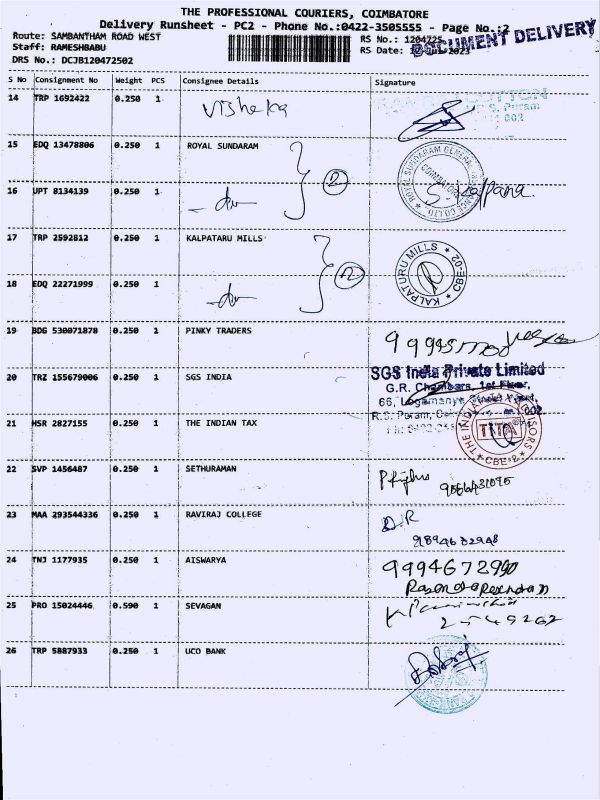 THE PROFESSIONAL COURIERS, COIMBATORE
Delivery Runsheet - PC2 - Phone No.:0422-3505555 - Page No.:2
Route: SAMBANTHAM ROAD WEST RS No.: 1204725
DOCUMENT DELIVERY
Staff: RAMESHBABU RS Date:
DRS No.: DCJB120472502
S No Consignment No Weight PCS Consignee Details Signature
14 TRP 1692422 0.250 1
15 EDQ 13478806 0.250 1 ROYAL SUNDARAM
2
ROYAL SUNDARAM GENERAL
COIMBATORE
16 UPT 8134139 0.250 1
S. Kalpana.
17 TRP 2592812 0.250 1 KALPATARU MILLS
KALPATARU MILLS
CBE-02
18 EDQ 22271999 0.250 1
19 BDG 530071878 0.250 1 PINKY TRADERS
20 TRZ 155679006 0.250 1 SGS INDIA
SGS India Private Limited
G.R. Chambers, 1st Floor,
R.S. Puram,
21 MSR 2827155 0.250 1 THE INDIAN TAX
THE INDIAN TAX ADVISORS
TITA
CBE-2
22 SVP 1456487 0.250 1 SETHURAMAN
23 MAA 293544336 0.250 1 RAVIRAJ COLLEGE
9894682948
24 TNJ 1177935 0.250 1 AISWARYA
9994672990
25 PRO 15024446 0.590 1 SEVAGAN
2549262
26 TRP 5887933 0.250 1 UCO BANK